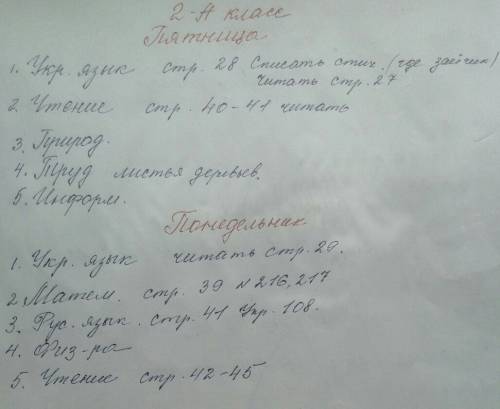 2-А класс
Пятница
1. Укр. язык стр. 28 Списать стих. (где зайчик)
Читать стр. 27
2. Чтение стр. 40-41 читать
3. Природ.
4. Труд листья деревьев.
5. Информ.
Понедельник
1. Укр. язык читать стр. 29.
2 Матем. стр. 39 N 216, 217
3. Рус. язык. стр. 41 Упр. 108.
4. Физ-ра
5. Чтение стр. 42-45